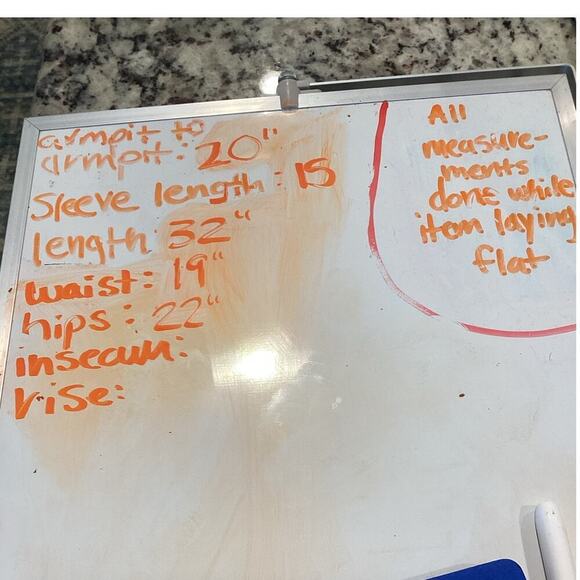 armpit to
armpit: 20"
Sleeve length: 15
length: 32"
waist: 19"
hips: 22"
inseam:
rise:
All
measure-
ments
done while
item laying
flat